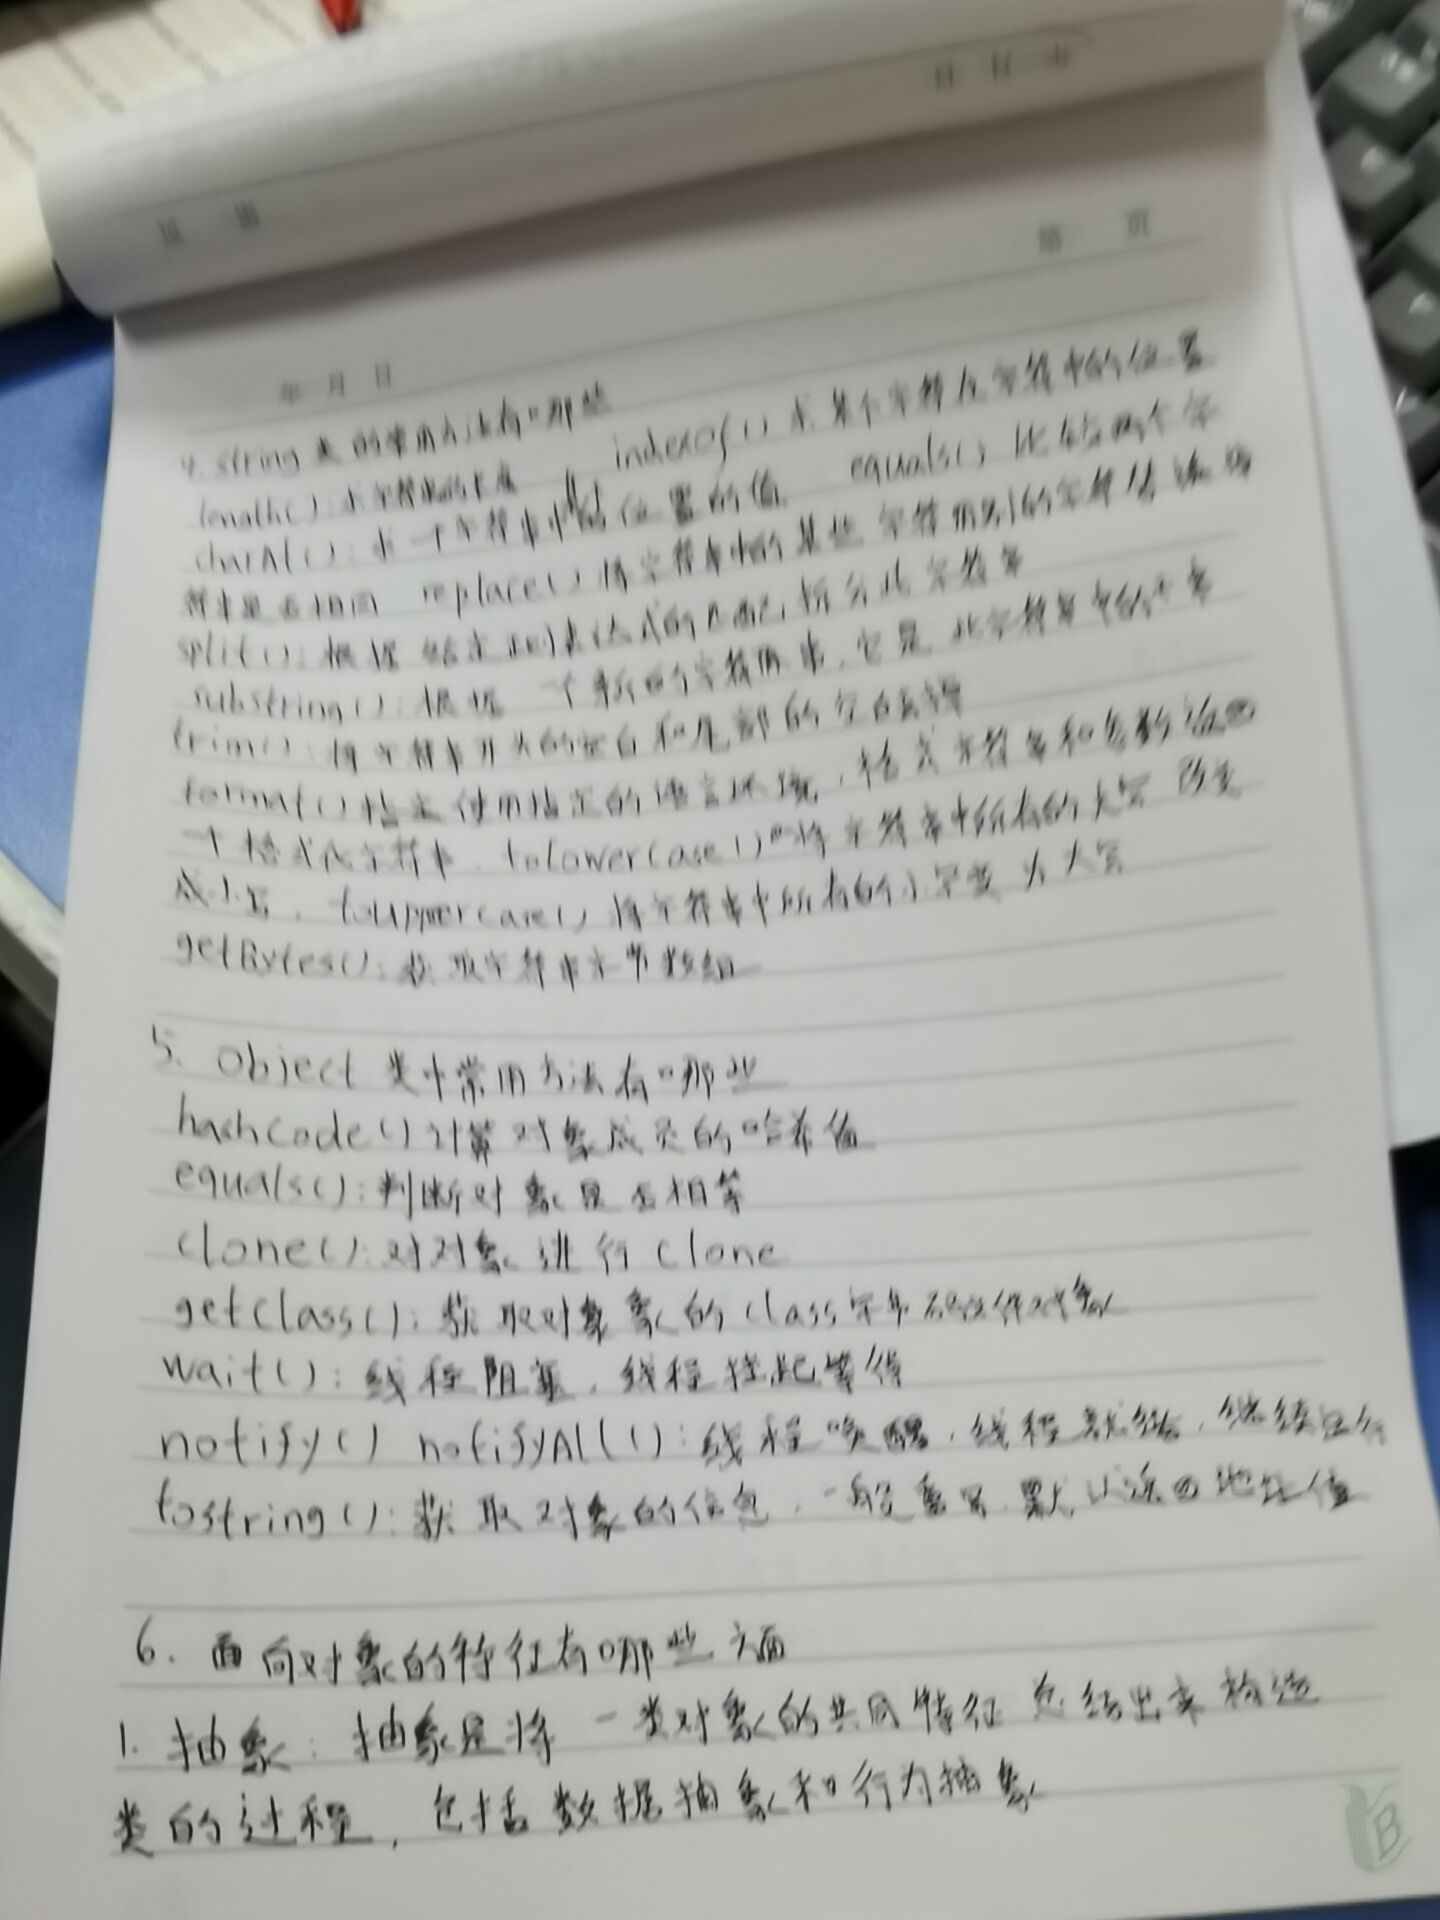 第 页
年 月 日
4. string 类的常用方法有哪些
length(): 求字符串的长度 indexOf() 求某个字符在字符串中的位置
charAt(): 求一个字符串中的位置的值 equals() 比较两个字
符串是否相同 replace() 将字符串中的某些字符用别的字符替换掉
split(): 根据给定正则表达式的匹配拆分此字符串
substring(): 根据 一个新的字符串, 它是 此字符串中的子串
trim(): 将字符串开头的空白和尾部的空白去掉
format() 指定使用指定的语言环境, 格式字符串和参数返回
一个格式化字符串. toLowerCase() 将字符串中所有的大写 改变
成小写. toUpperCase() 将字符串中所有的小写变为大写
getBytes(): 获取字符串字节数组
5. Object 类中常用方法有哪些
hashCode() 计算对象成员的哈希值
equals(): 判断对象是否相等
clone(): 对对象进行 clone
getClass(): 获取对象象的 class 字节码文件对象
wait(): 线程阻塞, 线程挂起等待
notify() notifyAll(): 线程唤醒, 线程就绪, 继续运行
tostring(): 获取对象的信息, 一般重写, 默认返回地址值
6. 面向对象的特征有哪些方面
1. 抽象: 抽象是将一类对象的共同特征总结出来构造
类的过程, 包括数据抽象和行为抽象